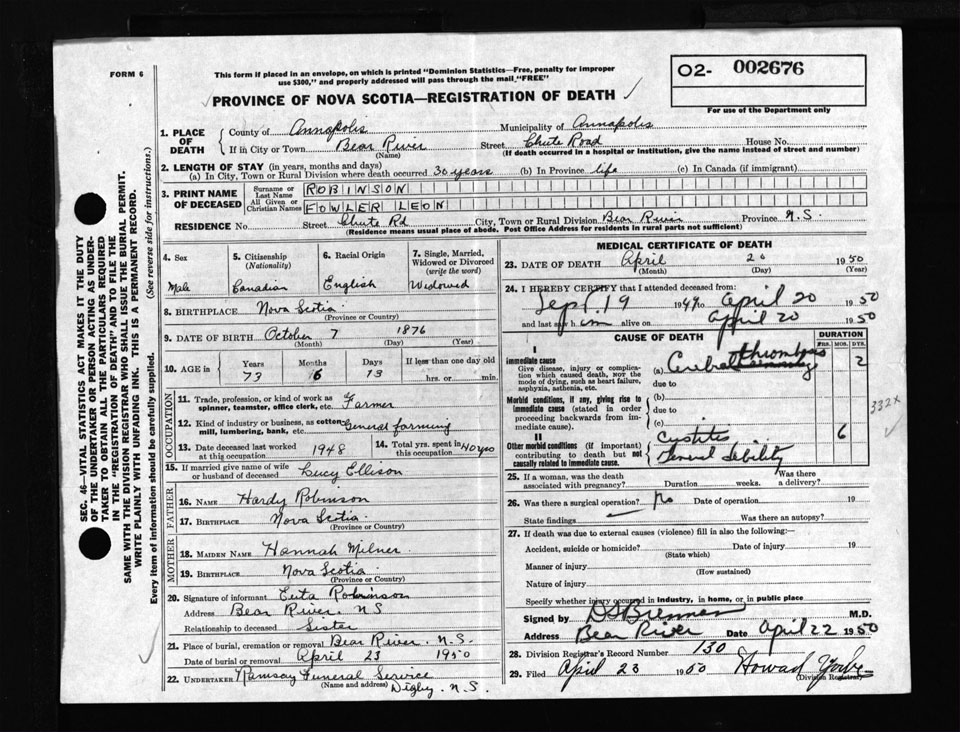 FORM 6
This form if placed in an envelope, on which is printed "Dominion Statistics—Free, penalty for improper
use $300," and properly addressed will pass through the mail "FREE"
PROVINCE OF NOVA SCOTIA—REGISTRATION OF DEATH
02- 002676
For use of the Department only
SEC. 46—VITAL STATISTICS ACT MAKES IT THE DUTY
OF THE UNDERTAKER OR PERSON ACTING AS UNDER-
TAKER TO OBTAIN ALL THE PARTICULARS REQUIRED
IN THE "REGISTRATION OF DEATH" AND TO FILE THE
SAME WITH THE DIVISION REGISTRAR WHO SHALL ISSUE THE BURIAL PERMIT.
WRITE PLAINLY WITH UNFADING INK. THIS IS A PERMANENT RECORD.
Every item of information should be carefully supplied. (See reverse side for instructions.)
1. PLACE OF DEATH
County of Annapolis Municipality of Annapolis
If in City or Town Bear River Street Chute Road House No.
(Name) (If death occurred in a hospital or institution, give the name instead of street and number)
2. LENGTH OF STAY (in years, months and days)
(a) In City, Town or Rural Division where death occurred 30 years (b) In Province life (c) In Canada (if immigrant)
3. PRINT NAME OF DECEASED
Surname or Last Name ROBINSON
All Given or Christian Names FOWLER LEON
RESIDENCE No. Street Chute Rd City, Town or Rural Division Bear River Province N.S.
(Residence means usual place of abode. Post Office Address for residents in rural parts not sufficient)
4. Sex
Male
5. Citizenship (Nationality)
Canadian
6. Racial Origin
English
7. Single, Married, Widowed or Divorced (write the word)
Widowed
8. BIRTHPLACE Nova Scotia
(Province or Country)
9. DATE OF BIRTH October 7 1876
(Month) (Day) (Year)
10. AGE in Years Months Days If less than one day old
73 6 13 hrs. or min.
OCCUPATION
11. Trade, profession, or kind of work as
spinner, teamster, office clerk, etc. Farmer
12. Kind of industry or business, as cotton-
mill, lumbering, bank, etc. General farming
13. Date deceased last worked
at this occupation 1948
14. Total yrs. spent in
this occupation 40 yrs
15. If married give name of wife
or husband of deceased Lucy Ellison
FATHER
16. NAME Hardy Robinson
17. BIRTHPLACE Nova Scotia
(Province or Country)
MOTHER
18. MAIDEN NAME Hannah Milner
19. BIRTHPLACE Nova Scotia
(Province or Country)
20. Signature of informant Robinson
Address Bear River. N.S
Relationship to deceased Sister
21. Place of burial, cremation or removal Bear River. N.S.
Date of burial or removal April 23 1950
22. UNDERTAKER Ramsay Funeral Service
(Name and address) Digby. N.S.
MEDICAL CERTIFICATE OF DEATH
23. DATE OF DEATH April 20 1950
(Month) (Day) (Year)
24. I HEREBY CERTIFY that I attended deceased from:
Sept. 19 1949 to April 20 1950
and last saw him alive on April 20 1950
CAUSE OF DEATH
DURATION
YRS. MOS. DYS.
I
Immediate cause
Give disease, injury or complica-
tion which caused death, NOT the
mode of dying, such as heart failure,
asphyxia, asthenia, etc.
(a) Cerebral thrombosis 2
due to
Morbid conditions, if any, giving rise to
immediate cause (stated in order
proceeding backwards from im-
mediate cause).
(b)
due to
(c)
332X
II
Other morbid conditions (if important)
contributing to death but not
causally related to immediate cause.
Cystitis 6
General debility
25. If a woman, was the death
associated with pregnancy? Duration weeks. Was there
a delivery?
26. Was there a surgical operation? no Date of operation 19
State findings Was there an autopsy?
27. If death was due to external causes (violence) fill in also the following:
Accident, suicide or homicide? Date of injury 19
(State which)
Manner of injury
(How sustained)
Nature of injury
Specify whether injury occurred in industry, in home, or in public place
Signed by M.D.
Address Bear River Date April 22 1950
28. Division Registrar's Record Number 130
29. Filed April 23 1950 Howard
(Division Registrar)